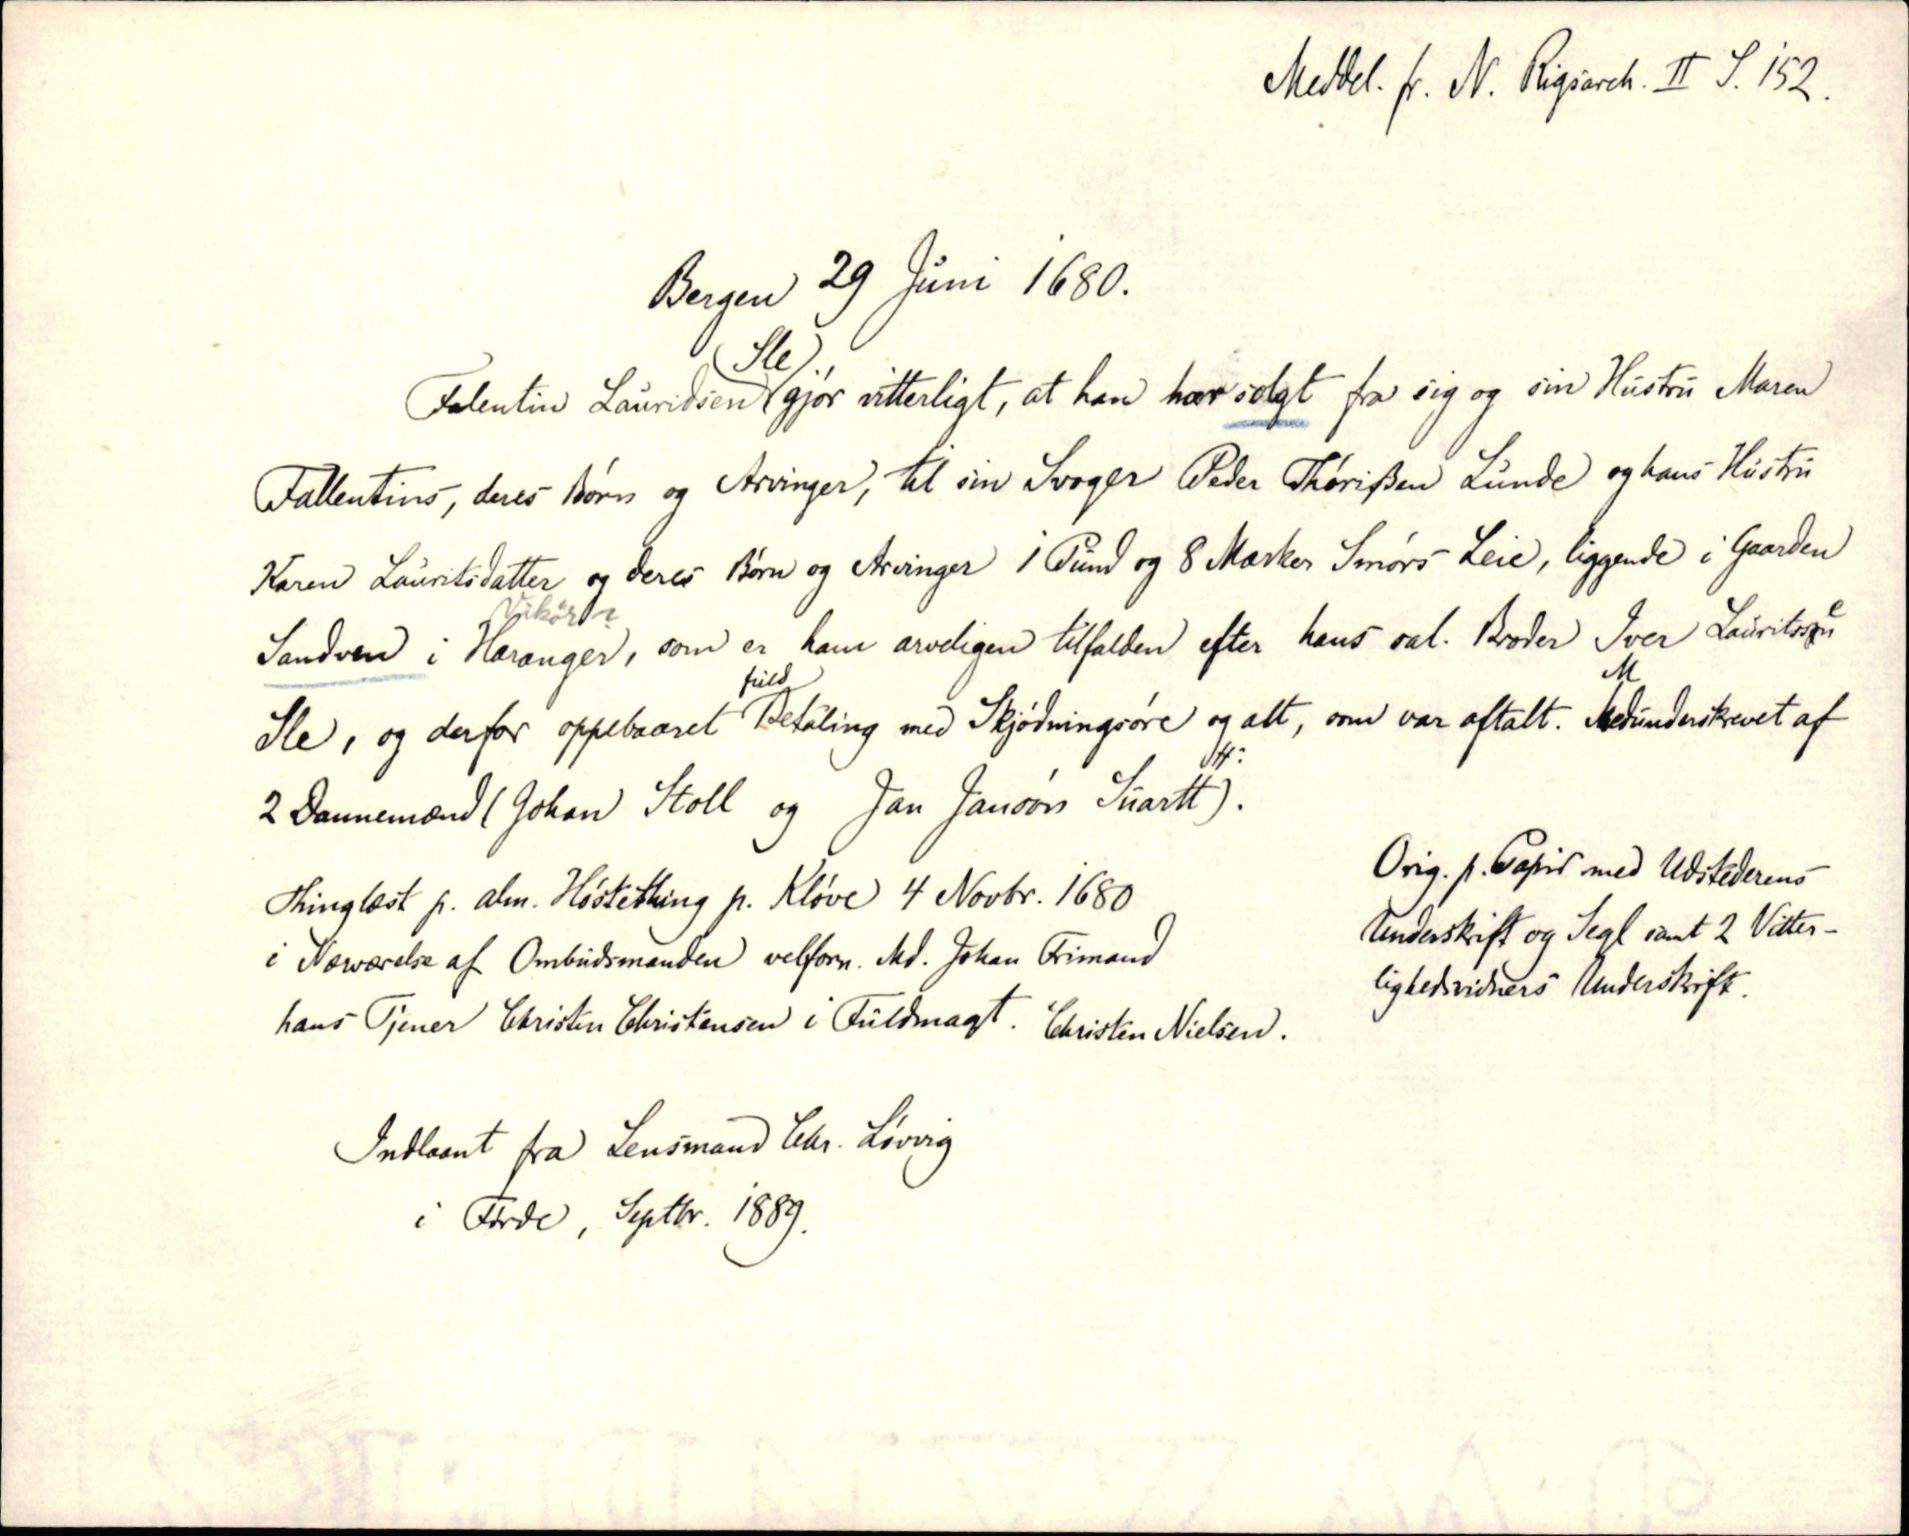 Meddel. fr. N. Rigsarch. II S. 152.
Bergen 29 Juni 1680.
Falentin Lauridsen Sle gjór vitterligt, at han har solgt fra sig og sin Hustru Maren
Fallentins, deres Bórn og Arvinger, til sin Svoger Peder Thórißen Lunde og hans Hustru
Karen Lauritsdatter og deres Bórn og Arvinger 1 Pund og 8 Marker Smórs Leie, liggende i Gaarden
Vikör?
Sandven i Haranger, som er ham arveligen tilfalden efter hans sal. Broder Iver Lauritssen
Sle, og derfor oppebaaret fuld Betaling med Skjódningsóre og alt, som var aftalt. Medunderskrevet af
2 Dannemænd (Johan Stoll og Jan Jansón Suartt H:).
Thinglæst p. alm. Hóstething p. Klóve 4 Novbr. 1680
i Nærværelse af Ombudsmanden velforn. Md. Johan Frimand
hans Tjener Christen Christensen i Fuldmagt. Christen Nielsen.
Orig. p. Papir med Udstederens
Underskrift og Segl samt 2 Vitter-
lighedsvidners Underskrift.
Indlaant fra Lensmand Chr. Lóvvig
i Fórde, Septbr. 1889.